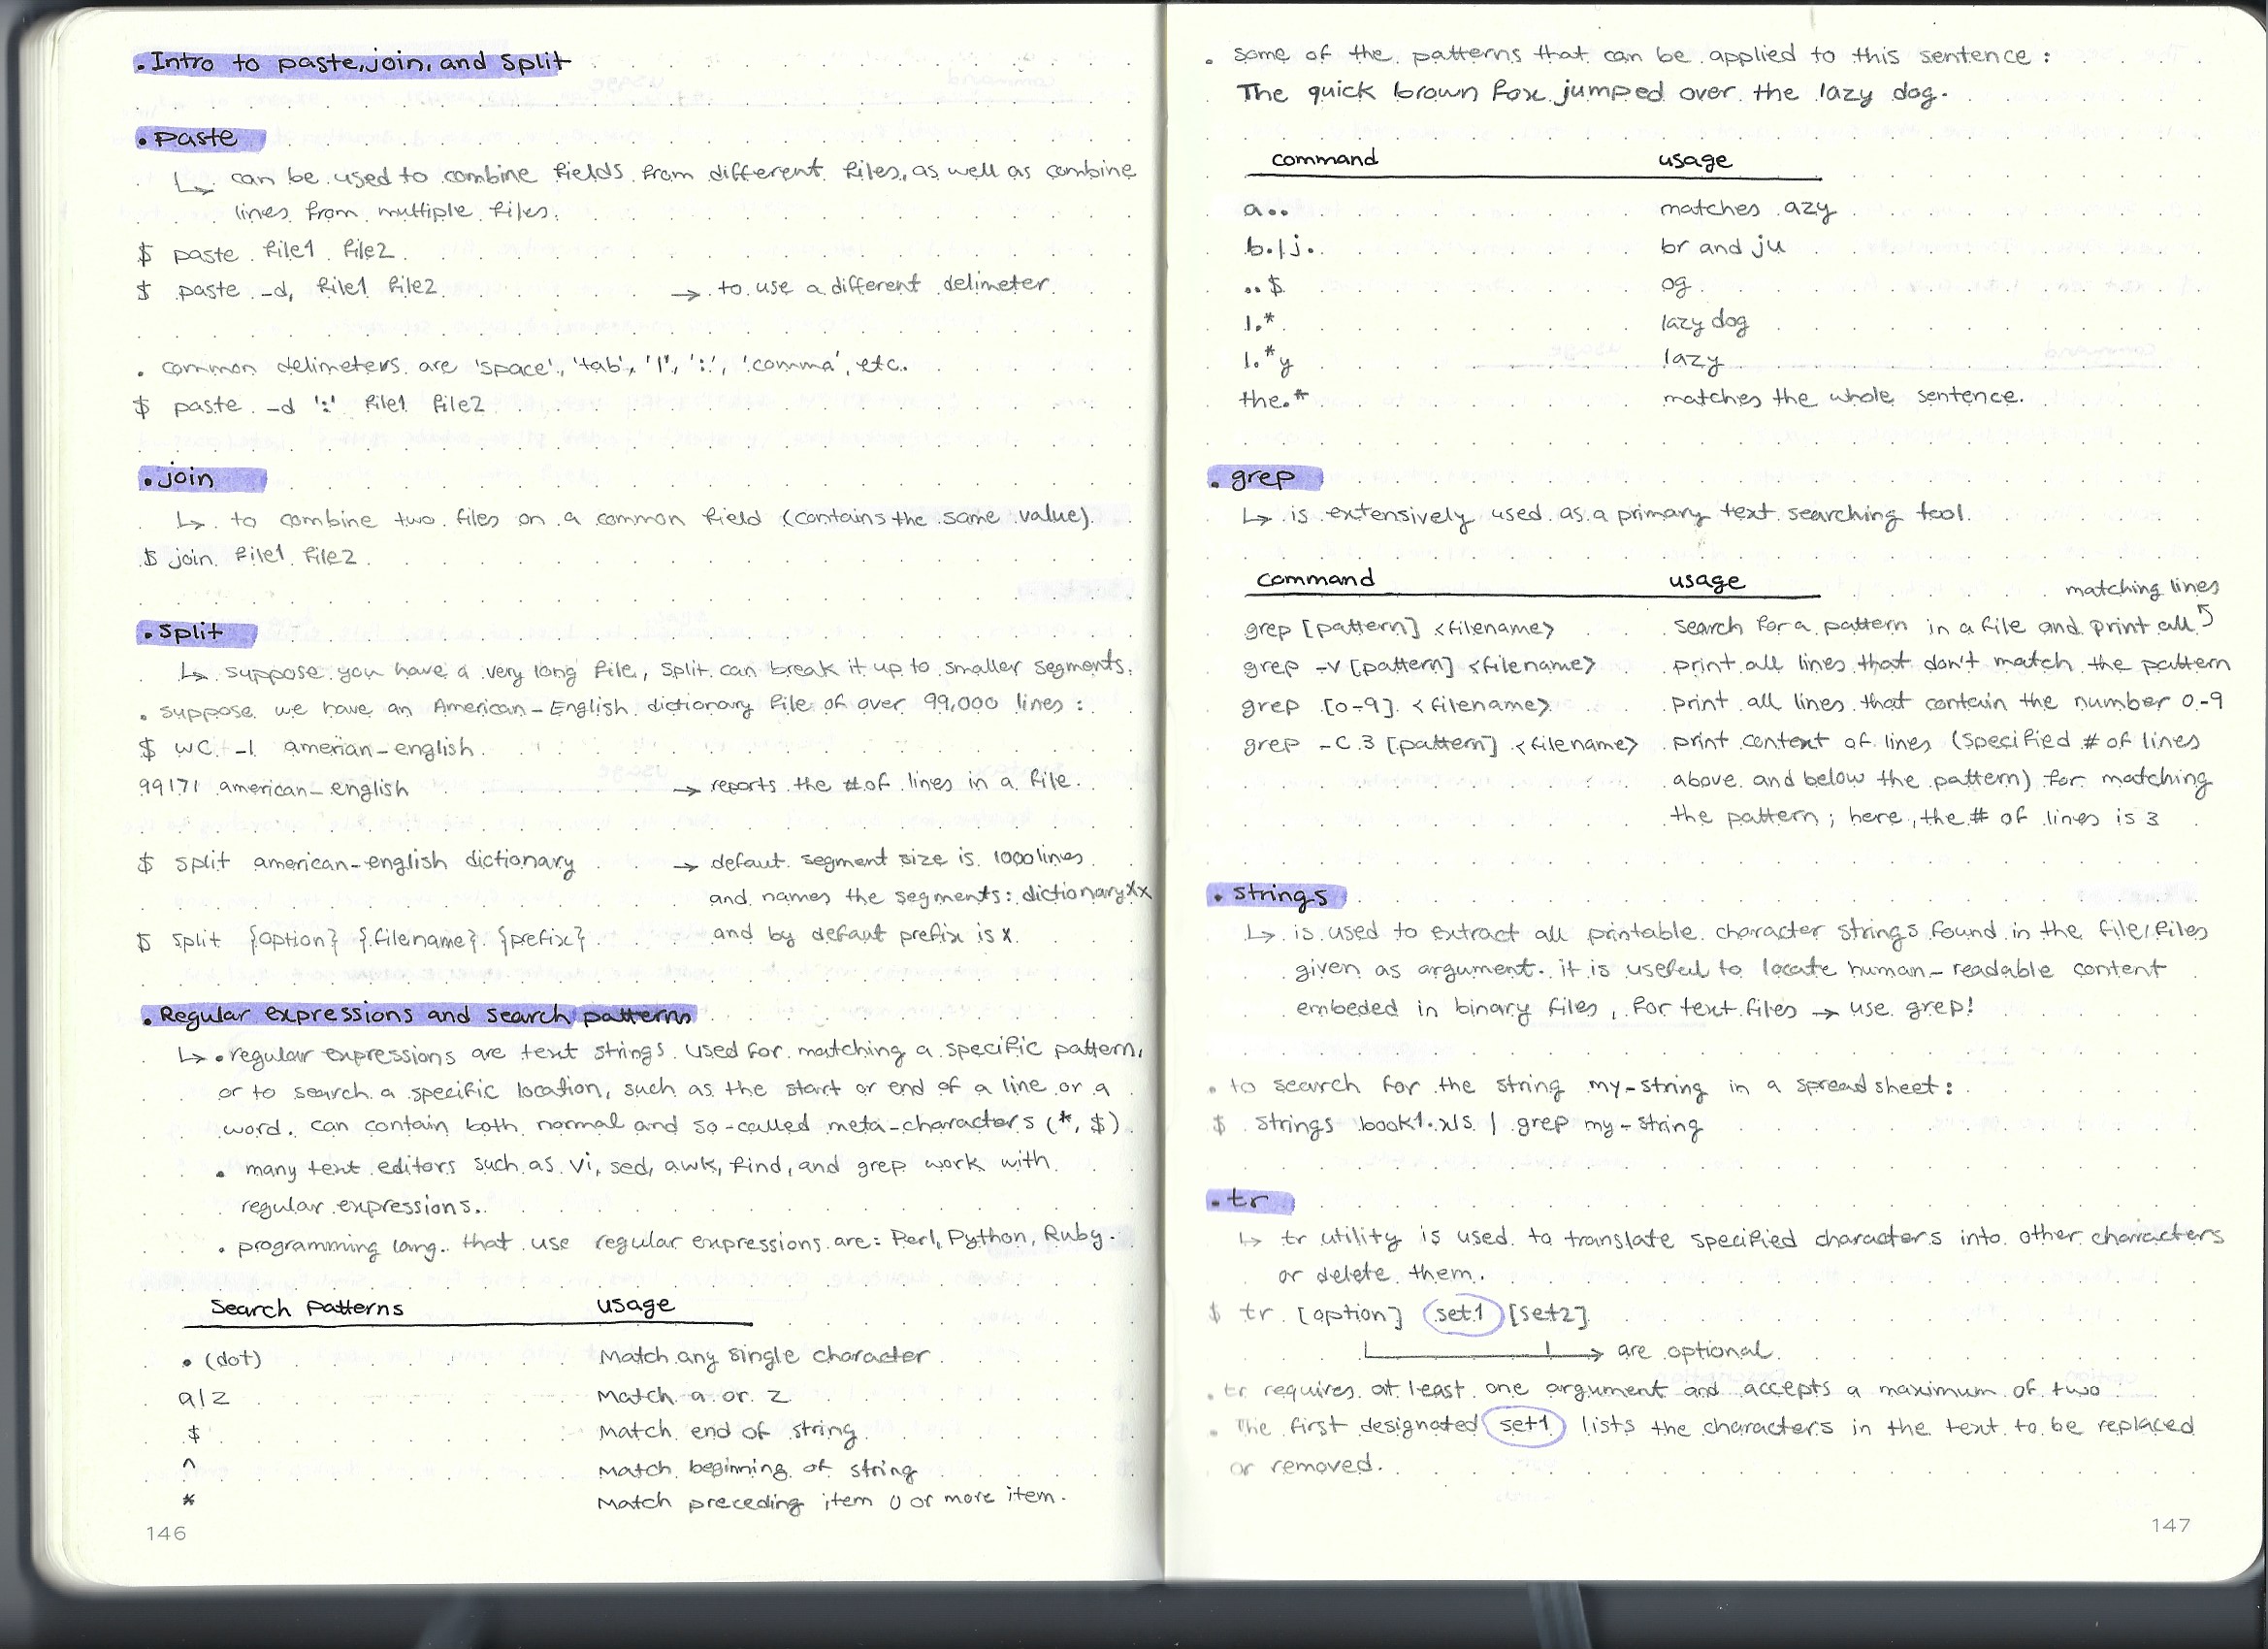 . Intro to paste, join, and split
. paste
↳ can be used to combine fields from different files, as well as combine
lines from multiple files.
$ paste file1 file2
$ paste -d, file1 file2 → to use a different delimeter
. common delimeters are 'space', 'tab', '|', ':', 'comma', etc.
$ paste -d ':' file1 file2
. join
↳ to combine two files on a common field (contains the same value)
$ join file1 file2
. split
↳ suppose you have a very long file, split can break it up to smaller segments.
. suppose we have an American-English dictionary file of over 99,000 lines :
$ wc -l amerian-english
99171 american-english → reports the # of lines in a file.
$ split american-english dictionary → defaut segment size is 1000 lines
and names the segments: dictionaryxx
$ split {option} {filename} {prefix} and by defaut prefix is x.
. Regular expressions and search patterns
↳ . regular expressions are text strings used for matching a specific pattern,
or to search a specific location, such as the start or end of a line or a
word. can contain both normal and so-called meta-characters (*, $)
. many text editors such as vi, sed, awk, find, and grep work with
regular expressions.
. programming lang. that use regular expressions are: Perl, Python, Ruby.
Search Patterns usage
. (dot) Match any single character
a|z Match a or z
$ Match end of string
^ Match beginning of string
* Match preceding item 0 or more item.
146
. some of the patterns that can be applied to this sentence :
The quick brown fox jumped over the lazy dog.
command usage
a.. matches azy
b.|j. br and ju
..$ og
l.* lazy dog
l.*y lazy
the.* matches the whole sentence.
. grep
↳ is extensively used as a primary text searching tool.
command usage
matching lines
grep [pattern] <filename> search for a pattern in a file and print all
grep -v [pattern] <filename> print all lines that don't match the pattern
grep [0-9] <filename> print all lines that contain the number 0-9
grep -C 3 [pattern] <filename> print context of lines (specified # of lines
above and below the pattern) for matching
the pattern ; here, the # of lines is 3
. strings
↳ is used to extract all printable character strings found in the file/files
given as argument. it is useful to locate human-readable content
embeded in binary files, for text files → use grep!
. to search for the string my-string in a spreadsheet :
$ strings book1.xls | grep my-string
. tr
↳ tr utility is used to translate specified characters into other characters
or delete them.
$ tr [option] set1 [set2]
→ are optional.
. tr requires at least one argument and accepts a maximum of two
. The first designated set1 lists the characters in the text to be replaced
or removed.
147